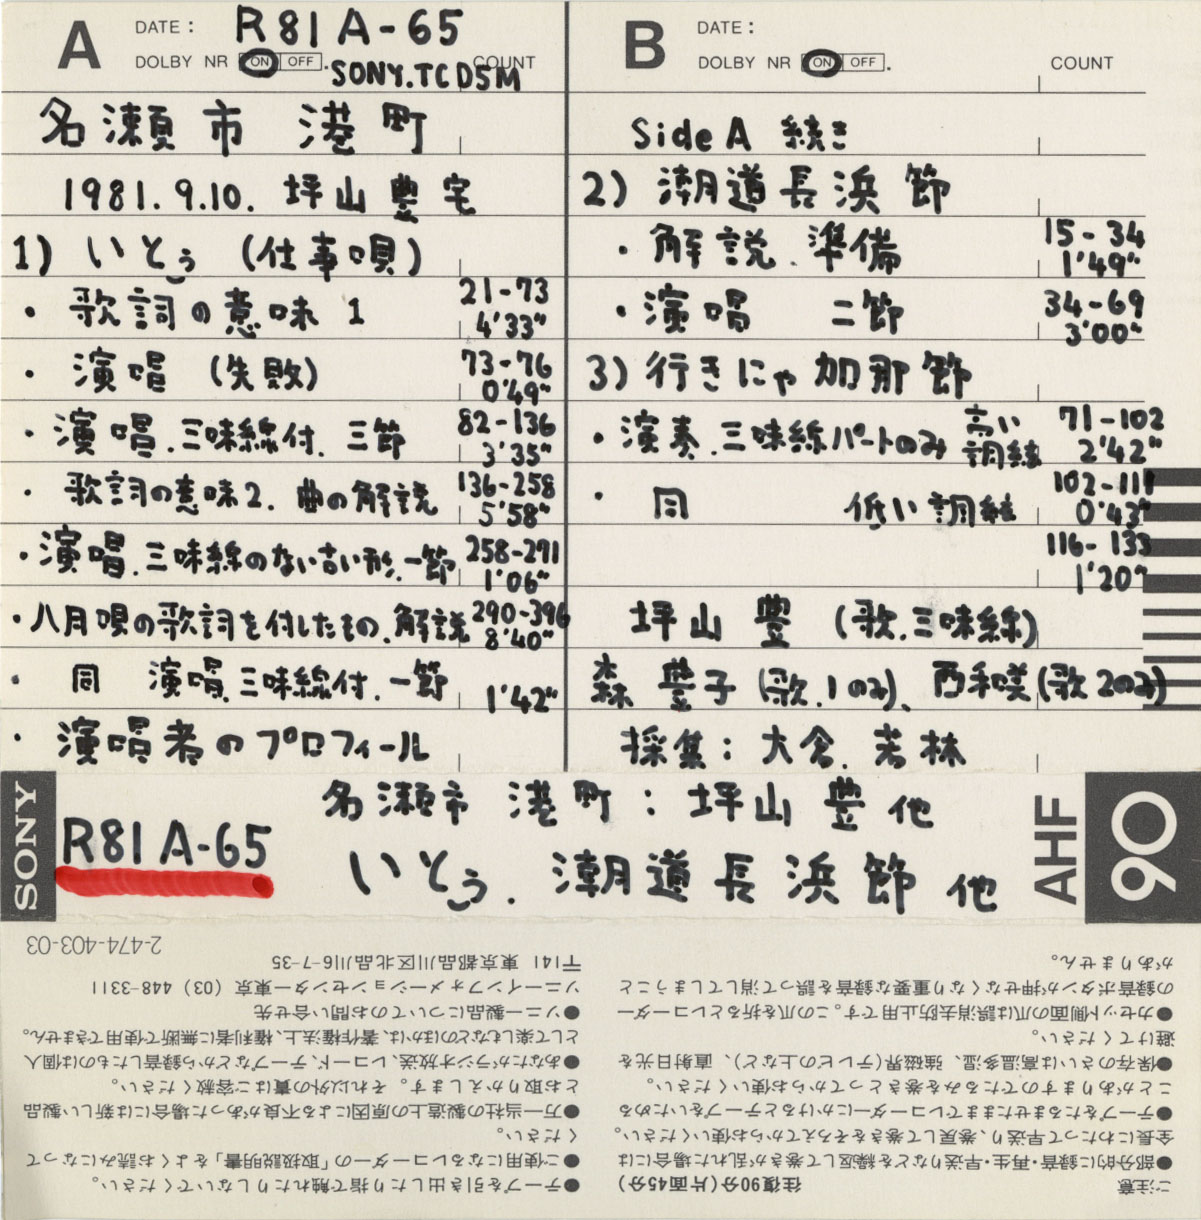 A DATE: R81A-65
DOLBY NR ON OFF. COUNT
SONY.TCD5M
名瀬市 港町
1981.9.10. 坪山豊宅
1) いとぅ (仕事唄)
・歌詞の意味 1 21-73 4'33"
・演唱 (失敗) 73-76 0'49"
・演唱.三味線付.三節 82-136 3'35"
・歌詞の意味2.曲の解説 136-258 5'58"
・演唱.三味線のない古い形.一節 258-291 1'06"
・八月唄の歌詞を付したもの.解説 290-396 8'40"
・同 演唱.三味線付.一節 1'42"
・演唱者のプロフィール
B DATE:
DOLBY NR ON OFF. COUNT
Side A 続き
2) 潮道長浜節
・解説.準備 15-34 1'49"
・演唱 二節 34-69 3'00"
3) 行きにゃ加那節
・演奏.三味線パートのみ 高い調絃 71-102 2'42"
・同 低い調絃 102-111 0'43"
116-133 1'20"
坪山 豊 (歌.三味線)
森 豊子 (歌.1のみ)、西和美(歌2のみ)
採集:大倉.若林
SONY
R81A-65
名瀬市 港町:坪山 豊 他
いとぅ.潮道長浜節 他
AHF 90
ご注意 往復90分(片面45分)
●部分的に録音・再生・早送りなどを繰返して巻きが乱れた場合には
全長にわたって早送り、巻戻して巻きをそろえてからお使いください。
●テープをたるませたままでレコーダーにかけるとテープをいためる
ことがありますのでたるみを巻きとってからお使いください。
●保存のさいは高温多湿、強磁界(テレビの上など)、直射日光を
避けてください。
●カセット側面の爪は誤消去防止用です。この爪を折るとレコーダー
の録音ボタンが押せなくなり重要な録音を誤って消してしまうこと
がありません。
●テープを引き出したり指で触れたりしないでください。
●ご使用になるレコーダーの「取扱説明書」をよくお読みになって
ください。
●万一当社の製造上の原因による不良があった場合には新しい製品
とお取りかえします。それ以外の責はご容赦ください。
●あなたがラジオ放送、レコード、テープなどから録音したものは個人
として楽しむなどのほかは、著作権法上、権利者に無断で使用できません。
●ソニー製品についてのお問い合せ先
ソニーインフォメーションセンター東京 (03) 448-3311
〒141 東京都品川区北品川6-7-35
2-474-403-03